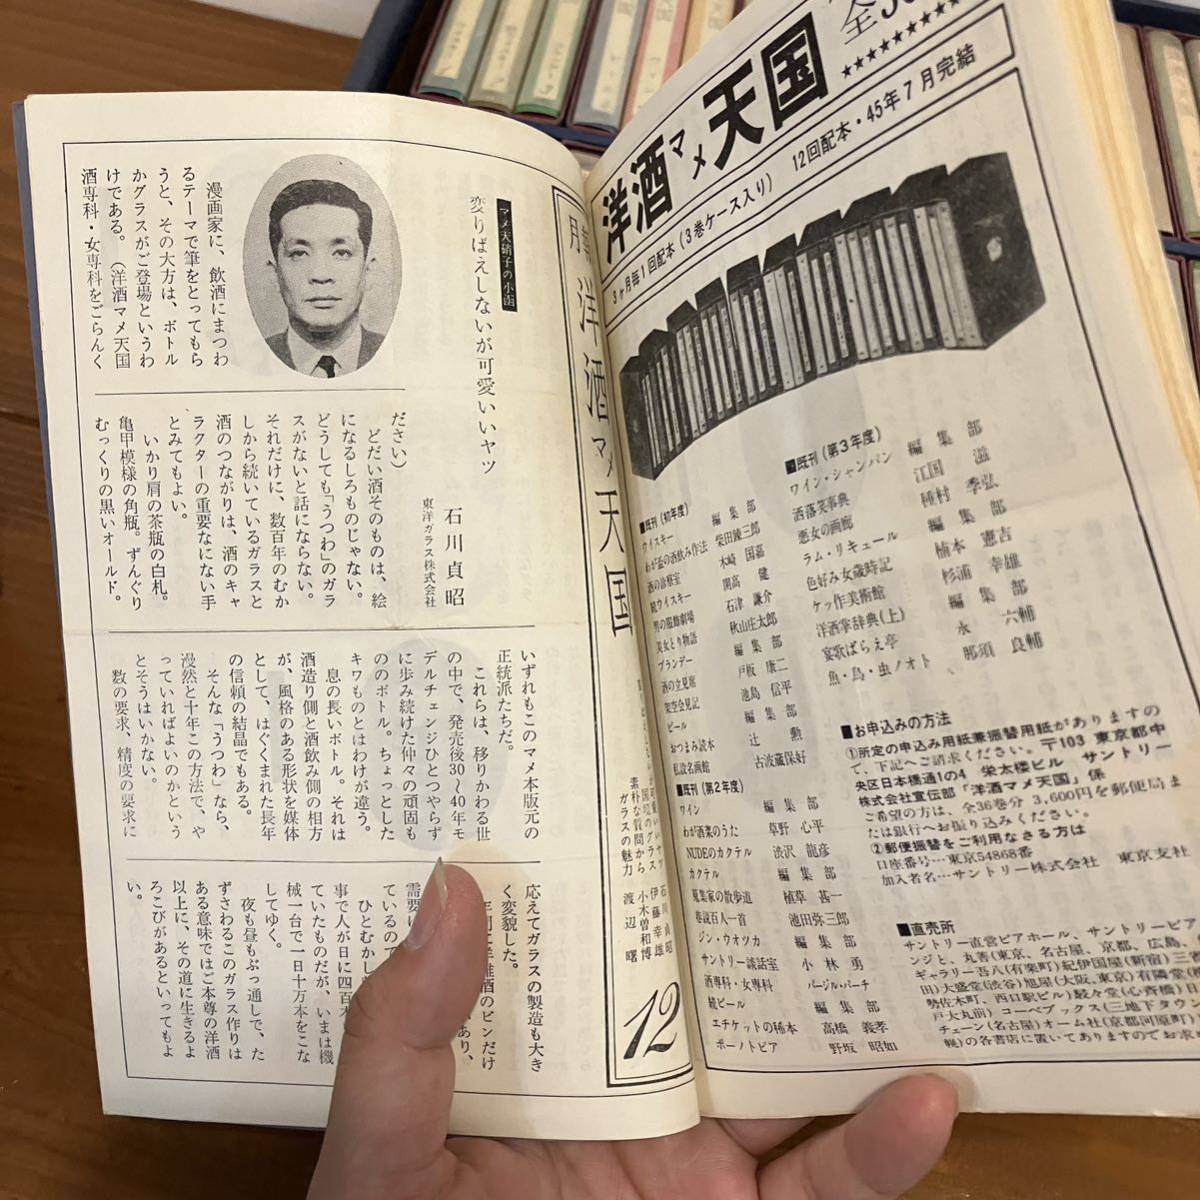 マメ天硝子の小函
変りばえしないが可愛いいヤツ
石川貞昭
東洋ガラス株式会社
漫画家に、飲酒にまつわ
るテーマで筆をとってもら
うと、その大方は、ボトル
かグラスがご登場というわ
けである。（洋酒マメ天国
酒専科・女専科をごらんく
ださい）
どだい酒そのものは、絵
になるしろものじゃない。
どうしても「うつわ」のガラ
スがないと話にならない。
それだけに、数百年のむか
しから続いているガラスと
酒のつながりは、酒のキャ
ラクターの重要なにない手
とみてもよい。
いかり肩の茶瓶の白札。
亀甲模様の角瓶。ずんぐり
むっくりの黒いオールド。
いずれもこのマメ本版元の
正統派たちだ。
これらは、移りかわる世
の中で、発売後30〜40年モ
デルチェンジひとつやらず
に歩み続けた仲々の頑固も
ののボトル。ちょっとした
キワものとはわけが違う。
息の長いボトル。それは
酒造り側と酒飲み側の相方
が、風格のある形状を媒体
として、はぐくまれた長年
の信頼の結晶でもある。
そんな「うつわ」なら、
漫然と十年この方法で、や
っていればよいのかという
とそうはいかない。
数の要求、精度の要求に
応えてガラスの製造も大き
く変貌した。
洋酒のビンだけ
あり、
需要
ているので
ひとむかし
事で人が日に四百本
ていたものだが、いまは機
械一台で一日十万本をこな
してゆく。
夜も昼もぶっ通しで、た
ずさわるこのガラス作りは
ある意味ではご本尊の洋酒
以上に、その道に生きるよ
ろこびがあるといってもよ
い。
洋酒マメ天国
素朴な質問から
ガラスの魅力
石川貞昭
伊藤幸雄
小木曽和博
渡辺曙
12
洋酒マメ天国
★★★★★★★★★
3ヶ月毎1回配本（3巻ケース入り） 12回配本・45年7月完結
■既刊（初年度）
ウイスキー 編集部
わが盃の酒飲み作法 柴田錬三郎
酒の診察室 木崎国嘉
続ウイスキー 開高健
男の服飾劇場 石津謙介
美女とり物語 秋山庄太郎
ブランデー 編集部
酒の立見席 戸板康二
架空会見記 池島信平
ビール 編集部
おつまみ読本 辻勲
私設名画館 古波蔵保好
■既刊（第2年度）
ワイン 編集部
わが酒菜のうた 草野心平
NUDEのカクテル 渋沢龍彦
カクテル 編集部
蒐集家の散歩道 植草甚一
巷説百人一首 池田弥三郎
ジン・ウオツカ 編集部
サントリー談話室 小林勇
酒専科・女専科 バージル・パーチ
続ビール 編集部
エチケットの秘本 高橋義孝
ポーノトピア 野坂昭如
■既刊（第3年度）
ワイン・シャンパン 編集部
洒落笑事典 江国滋
悪女の画廊 種村季弘
ラム・リキュール 編集部
色好み女歳時記 楠本憲吉
ケッ作美術館 杉浦幸雄
洋酒掌辞典（上） 編集部
宴歌ばらえ亭 永六輔
魚・鳥・虫ノオト 那須良輔
■お申込みの方法
①所定の申込み用紙兼振替用紙がありますの
で、下記へご請求ください。〒103 東京都中
央区日本橋通1の4 栄太楼ビル サントリー
株式会社宣伝部「洋酒マメ天国」係
ご希望の方は、全36巻分 3,600円を郵便局ま
たは銀行へお振り込みください。
②郵便振替をご利用なさる方は
口座番号…東京54868番
加入者名…サントリー株式会社 東京支社
■直売所
サントリー直営ビアホール、サントリービア
ンジと、丸善（東京、名古屋、京都、広島、
ギャラリー吾八（有楽町）紀伊国屋（新宿）三省
田）大盛堂（渋谷）旭屋（大阪、東京）有隣堂
勢佐木町、西口駅ビル）駸々堂（心斉橋）日
戸大丸前）コーベブックス（三地下タウン
チェーン（名古屋）オーム社（京都河原町）
幌）の各書店に置いてありますのでお求